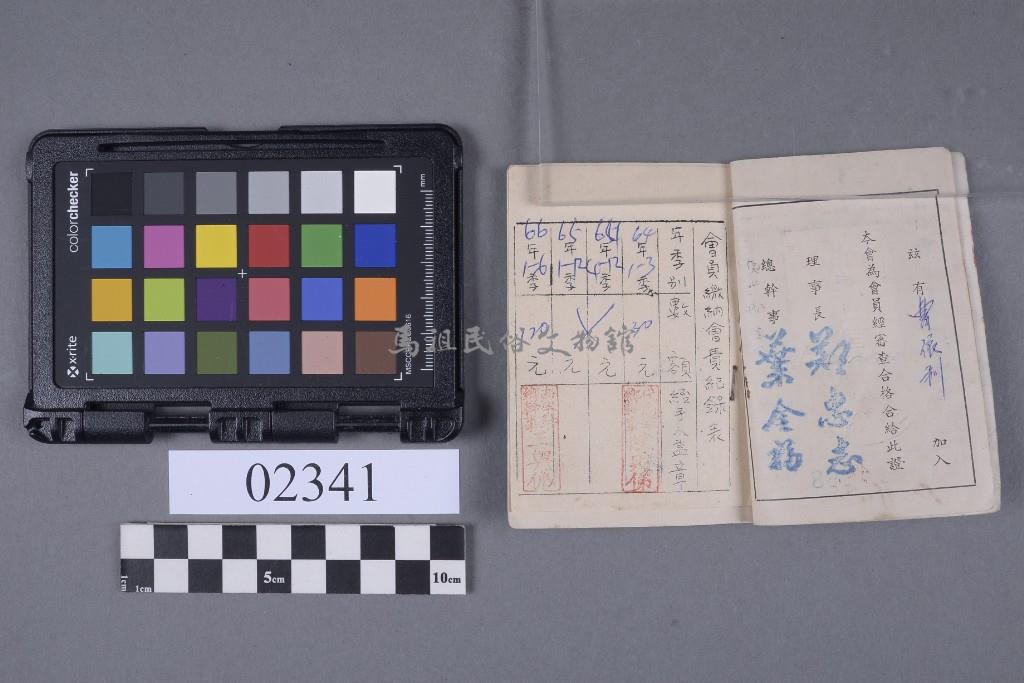 colorchecker
x·rite
mm
02341
1cm
1cm
5cm
10cm
馬祖民俗文物館
茲有曹依利 加入
本會為會員經審查合格合給此證
理事長 鄭忠志
總幹事 葉金福
會員繳納會費紀錄表
年季別 數額 經手人蓋章
64年1-3季 30元
64年4-12季 元
65年1-12季 元
66年1-6季 元